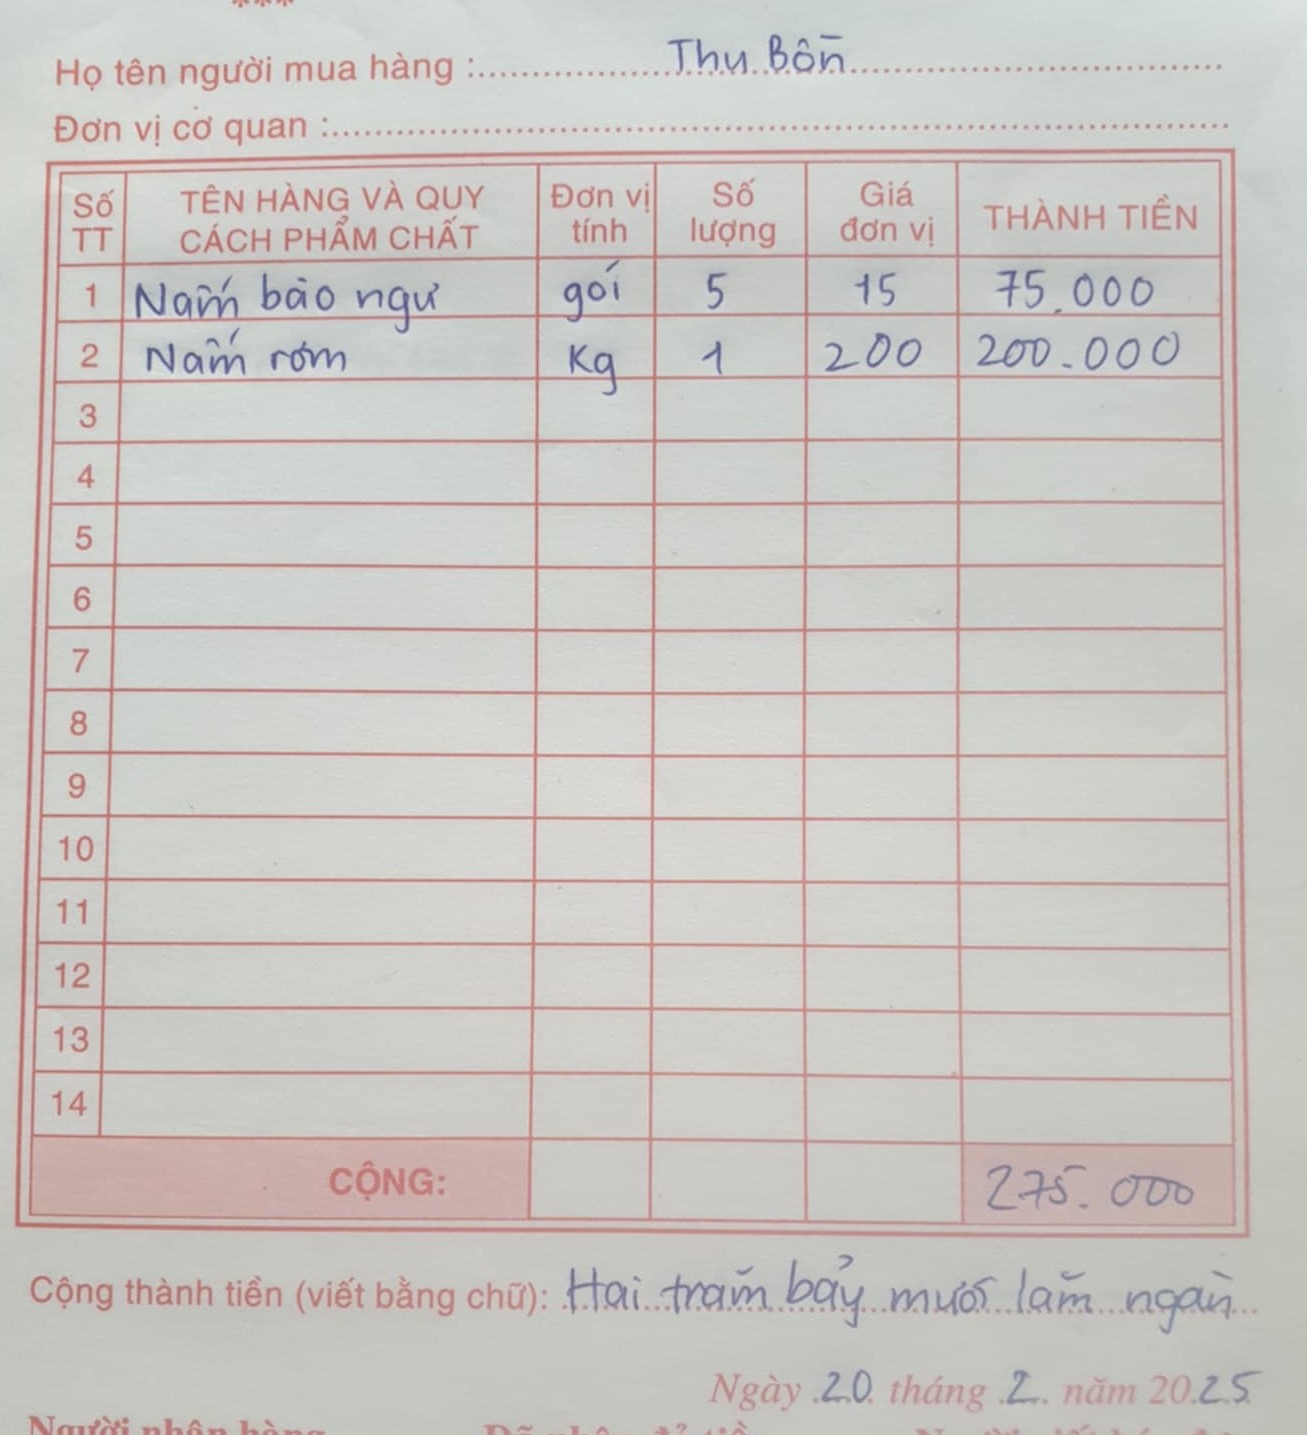 ***
Họ tên người mua hàng : Thu Bồn
Đơn vị cơ quan :
Số TT TÊN HÀNG VÀ QUY CÁCH PHẨM CHẤT Đơn vị tính Số lượng Giá đơn vị THÀNH TIỀN
1 Nấm bào ngư gói 5 15 75.000
2 Nấm rơm Kg 1 200 200.000
3
4
5
6
7
8
9
10
11
12
13
14
CỘNG: 275.000
Cộng thành tiền (viết bằng chữ): Hai trăm bảy mươi lăm ngàn
Ngày 20 tháng 2 năm 2025
Người nhận hàng